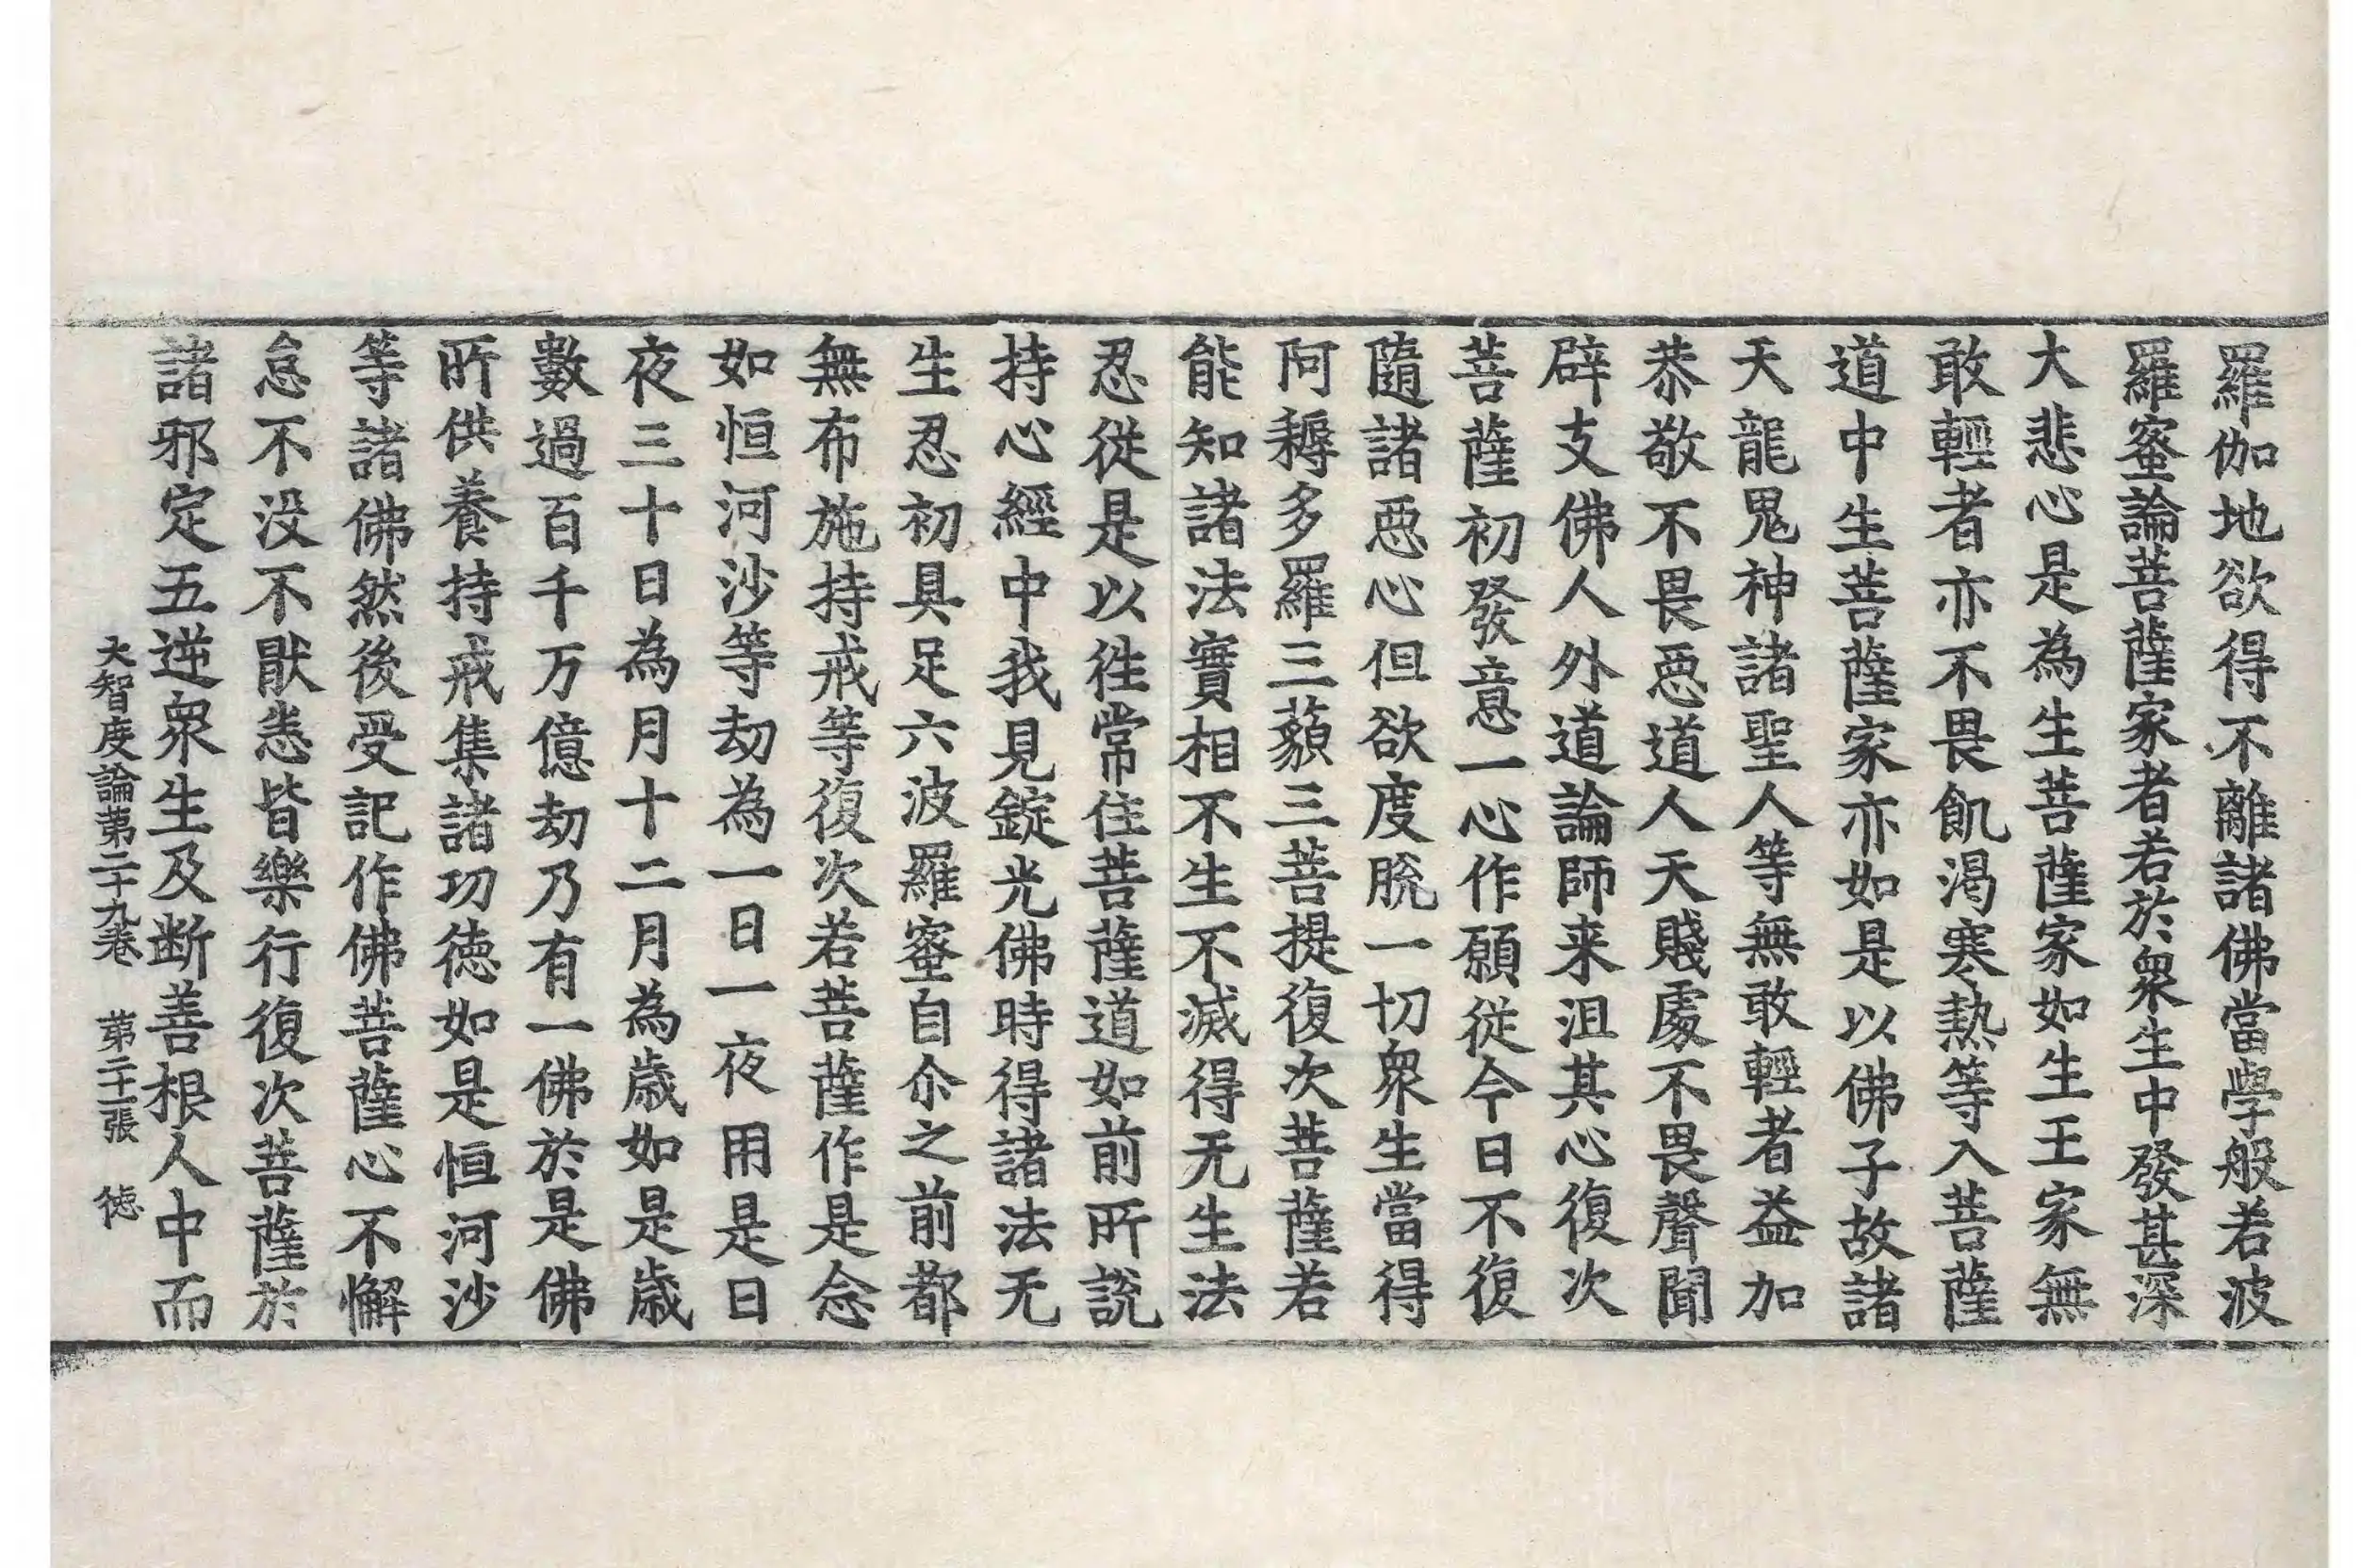 羅伽地欲得不離諸佛當學般若波
羅蜜論菩薩家者若於衆生中發甚深
大悲心是為生菩薩家如生王家無
敢輕者亦不畏飢渴寒熱等入菩薩
道中生菩薩家亦如是以佛子故諸
天龍鬼神諸聖人等無敢輕者益加
恭敬不畏惡道人天賤處不畏聲聞
辟支佛人外道論師来沮其心復次
菩薩初發意一心作願從今日不復
隨諸惡心但欲度脫一切衆生當得
阿耨多羅三藐三菩提復次菩薩若
能知諸法實相不生不滅得无生法
忍從是以往常住菩薩道如前所說
持心經中我見錠光佛時得諸法无
生忍初具足六波羅蜜自尒之前都
無布施持戒等復次若菩薩作是念
如恒河沙等劫為一日一夜用是日
夜三十日為月十二月為歲如是歲
數過百千万億劫乃有一佛於是佛
所供養持戒集諸功德如是恒河沙
等諸佛然後受記作佛菩薩心不懈
怠不没不猒悉皆樂行復次菩薩於
諸邪定五逆衆生及断善根人中而
大智度論第二十九卷 第二十一張 德